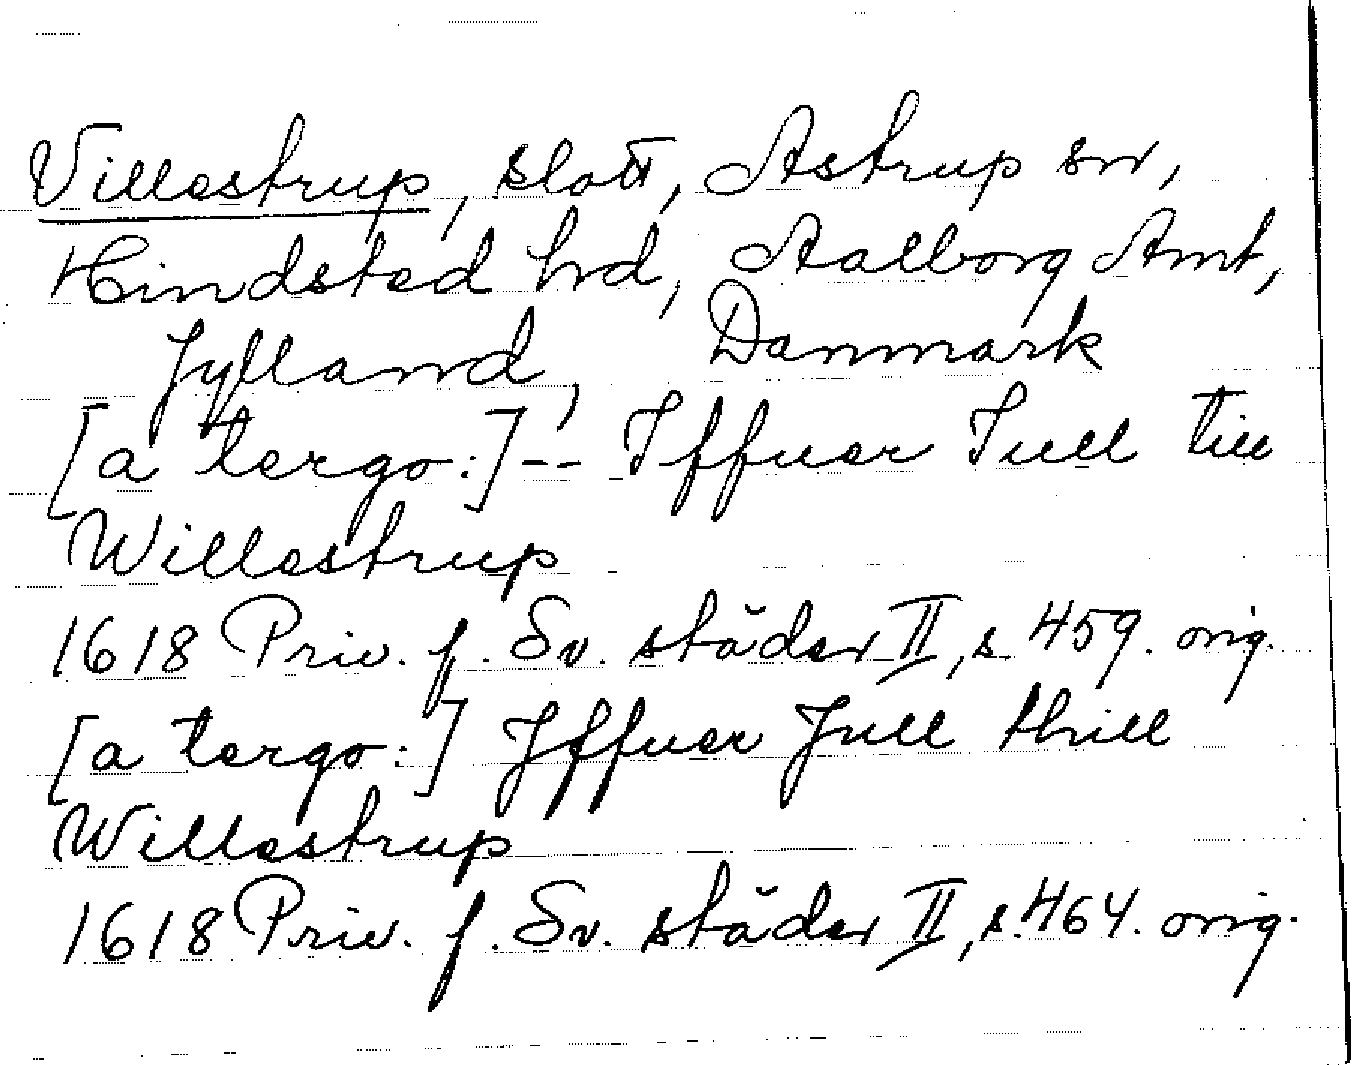 Villestrup, slott, Astrup sn,
Hindsted hrd, Aalborg Amt,
Jylland, Danmark
[a tergo:]-- Iffuer Iull till
Willestrup
1618 Priv. f. Sv. städer II, s. 459. orig.
[a tergo:] Jffuer Jull thill
Willestrup
1618 Priv. f. Sv. städer II, s. 464. orig.